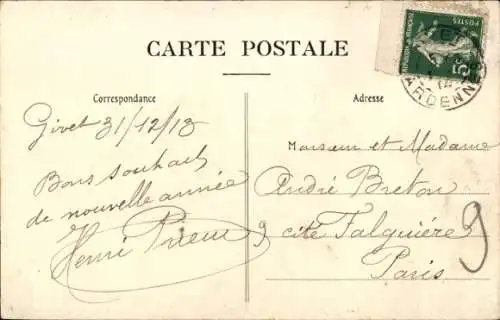 CARTE POSTALE
Correspondance
Adresse
REPUBLIQUE FRANCAISE
POSTES
5
ARDENNES
Givet 31/12/13
Bons souhaits
de nouvelle année
Henri
Monsieur et Madame
André Breton
9 cité Falguière
Paris
9